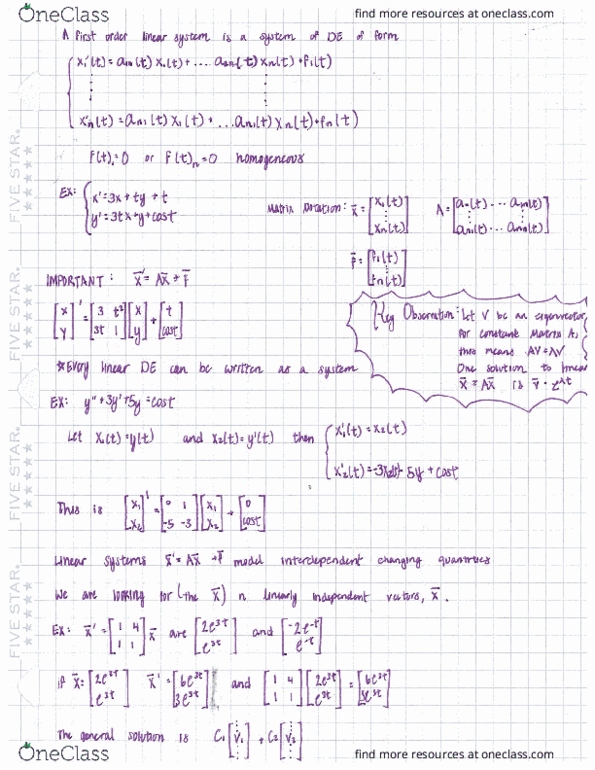 OneClass
find more resources at oneclass.com
A first order linear system is a system of DE of form
x₁'(t) = a₁₁(t) x₁(t) + .... a₁n(t) xn(t) + f₁(t)
xn'(t) = an₁(t) x₁(t) + ...an₁(t) xn(t) + fn(t)
f(t)₁=0 or f(t)n=0 homogeneous
EX: { x' = 3x + ty + t
y' = 3tx + y + cost
Matrix Notation: x̄ = [x₁(t) ⋮ xn(t)] A = [a₁₁(t) ... a₁n(t) ⋮ an₁(t) ... ann(t)]
F̄ = [f₁(t) ⋮ fn(t)]
IMPORTANT: x̄' = Ax̄ + F̄
[x y]' = [3 t² 3t 1] [x y] + [t cost]
Key Observation: Let V be an eigenvector
for constant Matrix A,
this means AV=λV
One solution to linear
x̄' = Ax̄ is v̄ · e^λt
*Every linear DE can be written as a system
EX: y'' + 3y' + 5y = cost
Let x₁(t) = y(t) and x₂(t) = y'(t) then { x₁'(t) = x₂(t)
x₂'(t) = -3x₂(t) - 5y + cost
This is [x₁ x₂]' = [0 1 -5 -3] [x₁ x₂] + [0 cost]
Linear systems x̄' = Ax̄ + F̄ model interdependent changing quantities
We are looking for (the x̄) n linearly independent vectors, x̄.
EX: x̄' = [1 4 1 1] x̄ are [2e^3t e^3t] and [-2e^-t e^-t]
if x̄ = [2e^3t e^3t] x̄' = [6e^3t 3e^3t] and [1 4 1 1] [2e^3t e^3t] = [6e^3t 3e^3t]
The general solution is C₁ [⋮ v₁ ⋮] + C₂ [⋮ v₂ ⋮]
OneClass
find more resources at oneclass.com
FIVE STAR.
FIVE STAR.
FIVE STAR.
FIVE STAR.